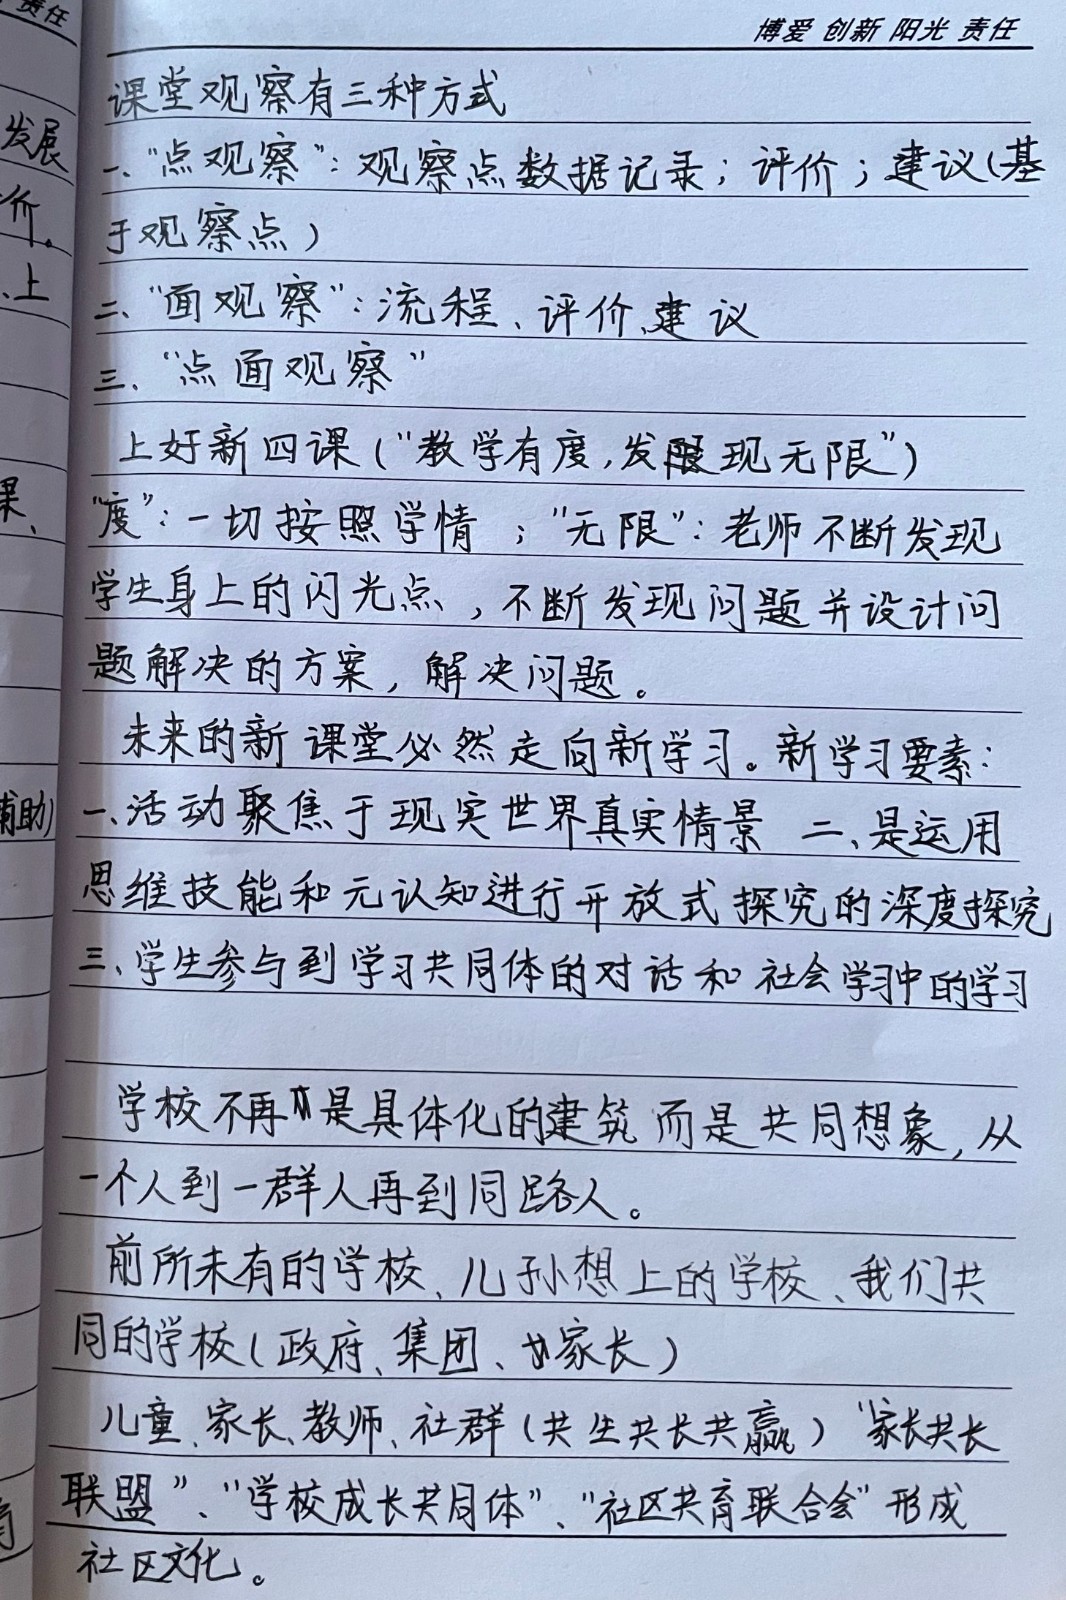 博爱 创新 阳光 责任
课堂观察有三种方式
一、“点观察”：观察点数据记录；评价；建议(基
于观察点)
二、“面观察”：流程、评价、建议
三、“点面观察”
上好新四课(“教学有度,发现无限”)
“度”：一切按照学情；“无限”：老师不断发现
学生身上的闪光点，不断发现问题并设计问
题解决的方案，解决问题。
未来的新课堂必然走向新学习。新学习要素：
一、活动聚焦于现实世界真实情景 二、是运用
思维技能和元认知进行开放式探究的深度探究
三、学生参与到学习共同体的对话和社会学习中的学习
学校不再是具体化的建筑而是共同想象，从
一个人到一群人再到同路人。
前所未有的学校、儿子想上的学校、我们共
同的学校(政府、集团、家长)
儿童、家长、教师、社群(共生共长共赢)“家长共长
联盟”、“学校成长共同体”、“社区共育联合会”形成
社区文化。
责任
发展
价。
、上
课、
辅助)